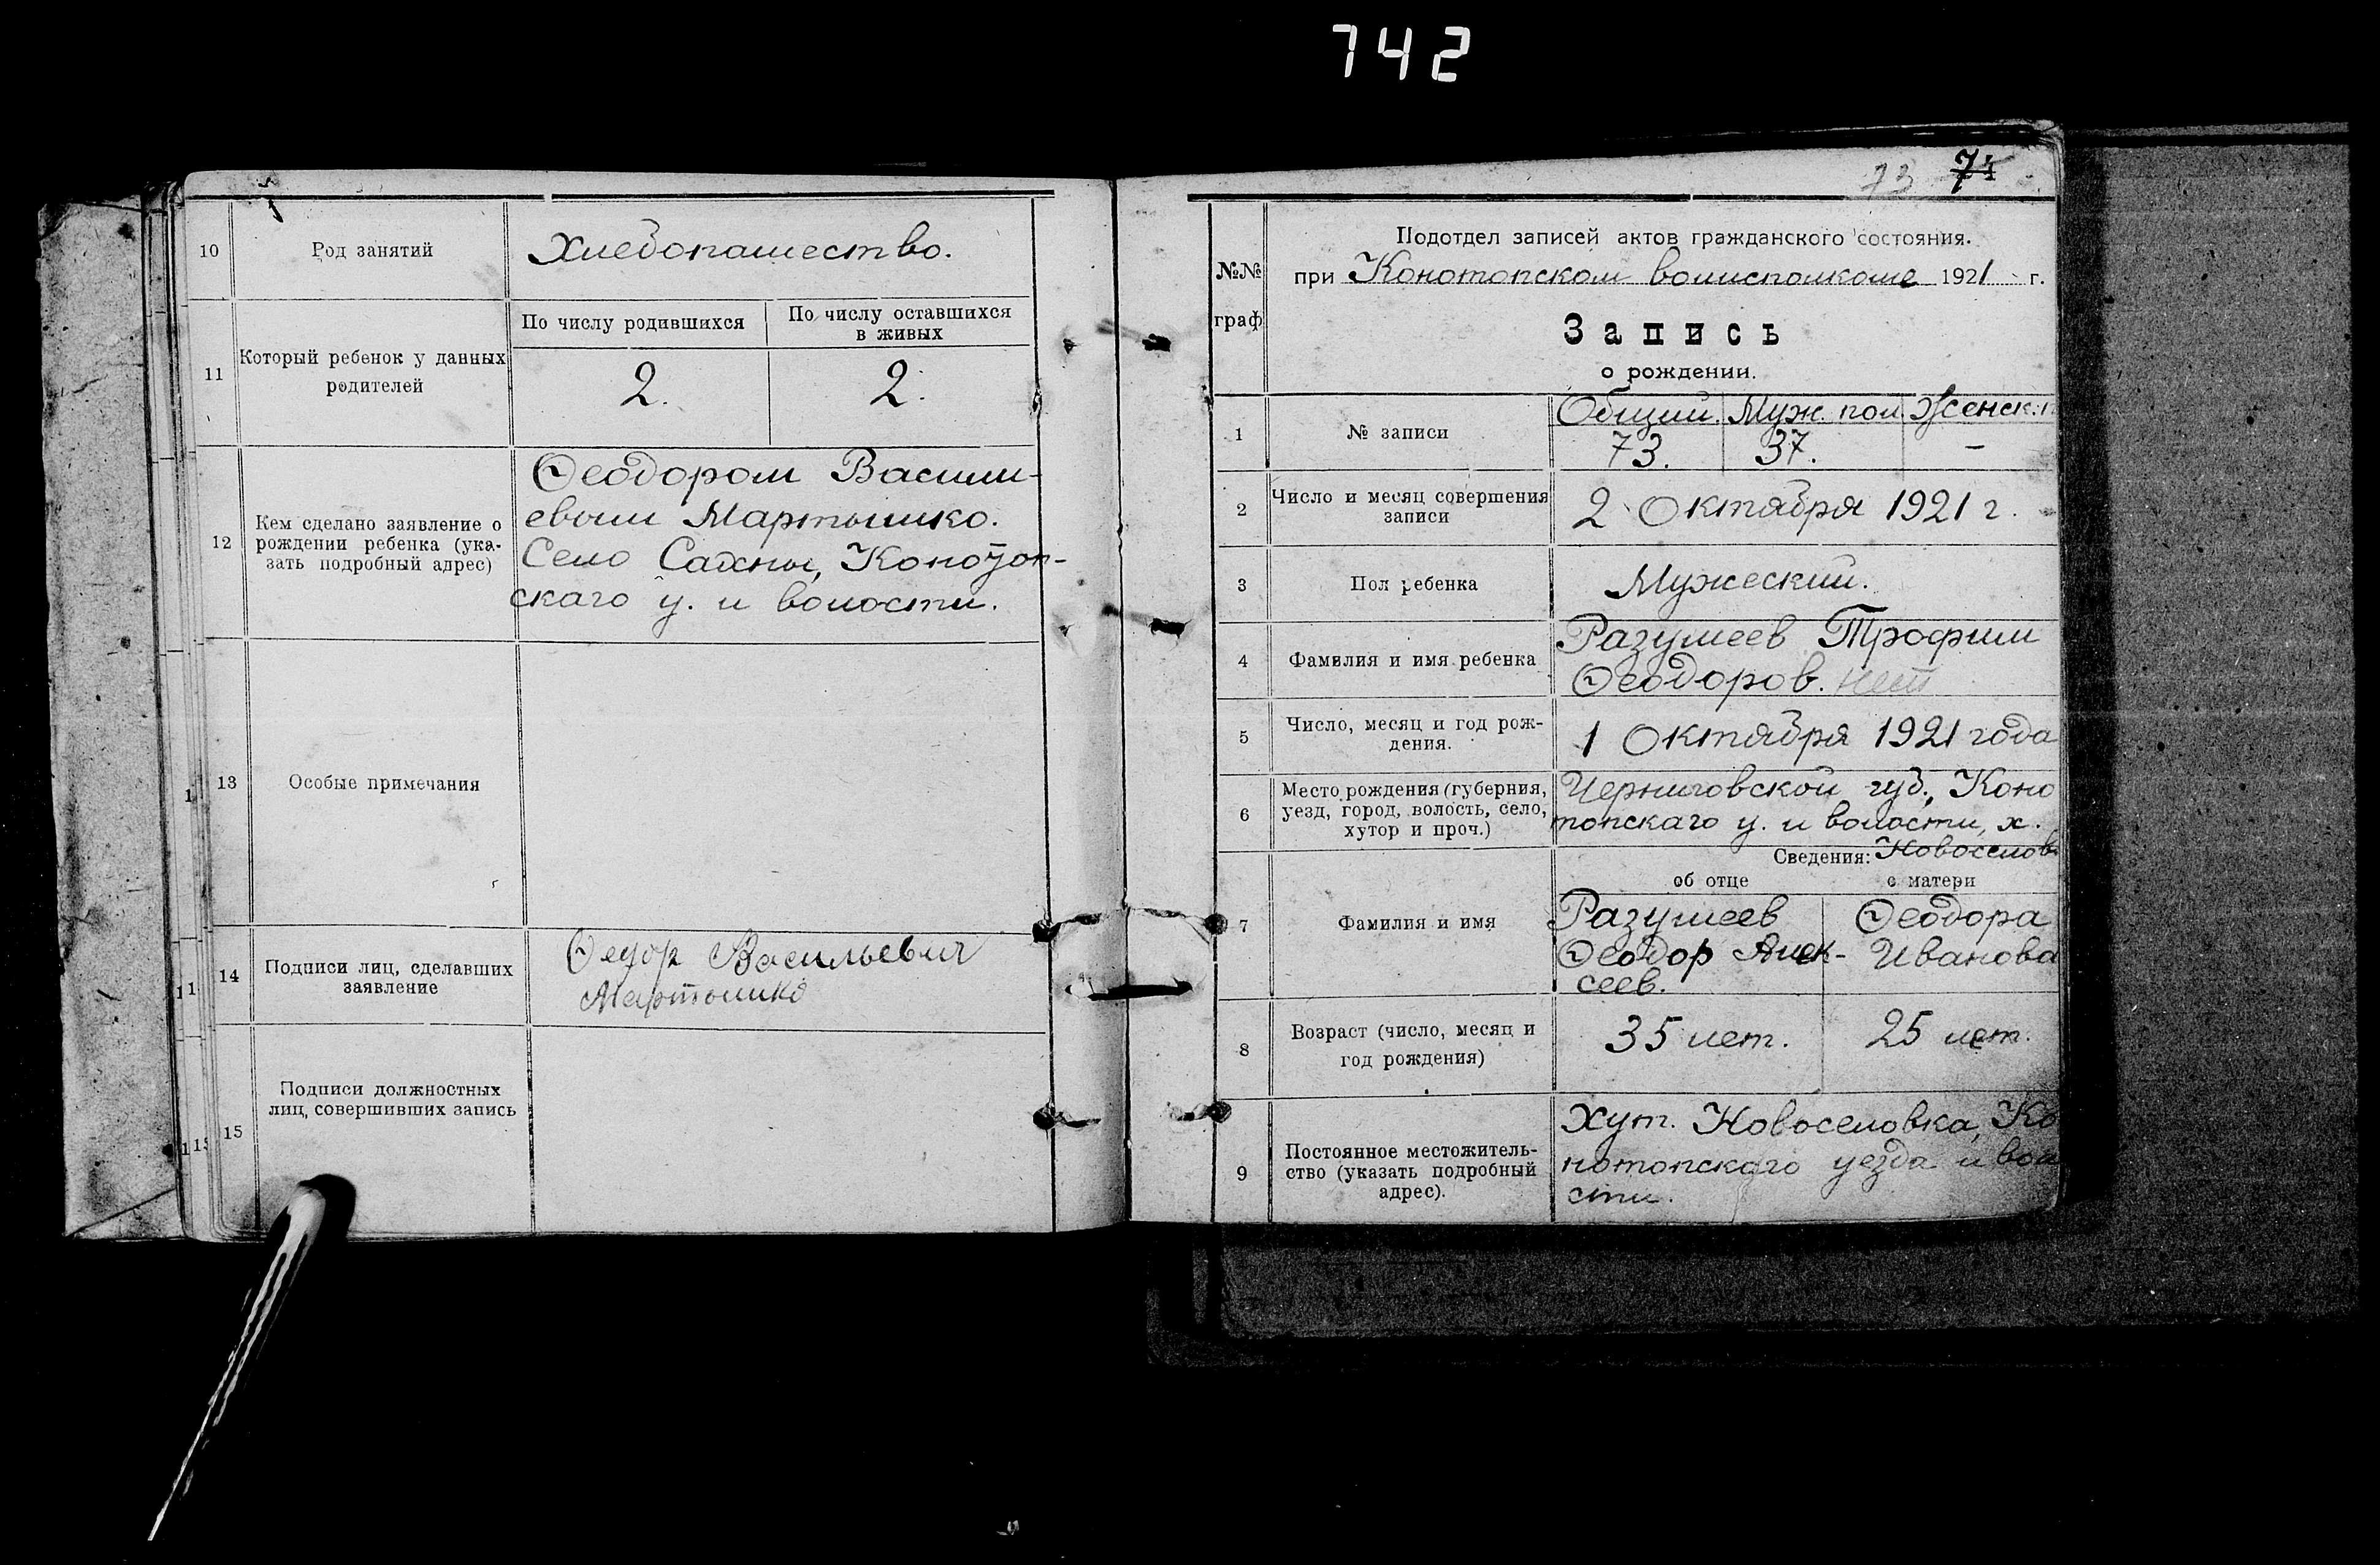 742
10
Род занятий
Хлебопашество.
11
Который ребенок у данных
родителей
По числу родившихся
По числу оставшихся
в живых
2.
2.
12
Кем сделано заявление о
рождении ребенка (ука-
зать подробный адрес)
Ѳеодором Васили-
евым Мартышко.
Село Сахны, Конотоп-
скаго у. и волости.
13
Особые примечания
14
Подписи лиц, сделавших
заявление
Ѳедор Васильевич
Мартышко
15
Подписи должностных
лиц, совершивших запись
73 74
№№
граф
Подотдел записей актов гражданского состояния.
при Конотопском волисполкоме 1921 г.
Запись
о рождении.
1
№ записи
Общий. Муж. пол Женск. п
73. 37. –
2
Число и месяц совершения
записи
2 Октября 1921 г.
3
Пол ребенка
Мужеский.
4
Фамилия и имя ребенка
Разумеев Трофим
Ѳеодоров. нет
5
Число, месяц и год рож-
дения.
1 Октября 1921 года
6
Место рождения (губерния,
уезд, город, волость, село,
хутор и проч.)
Черниговской губ., Коно
топскаго у. и волости, х.
Сведения: Новоселов
об отце
о матери
7
Фамилия и имя
Разумеев
Ѳеодор Алек-
сеев.
Ѳеодора
Иванова
8
Возраст (число, месяц и
год рождения)
35 лет.
25 лет.
9
Постоянное местожитель-
ство (указать подробный
адрес).
Хут. Новоселовка, Ко
нотопскаго уезда и вол
сти.